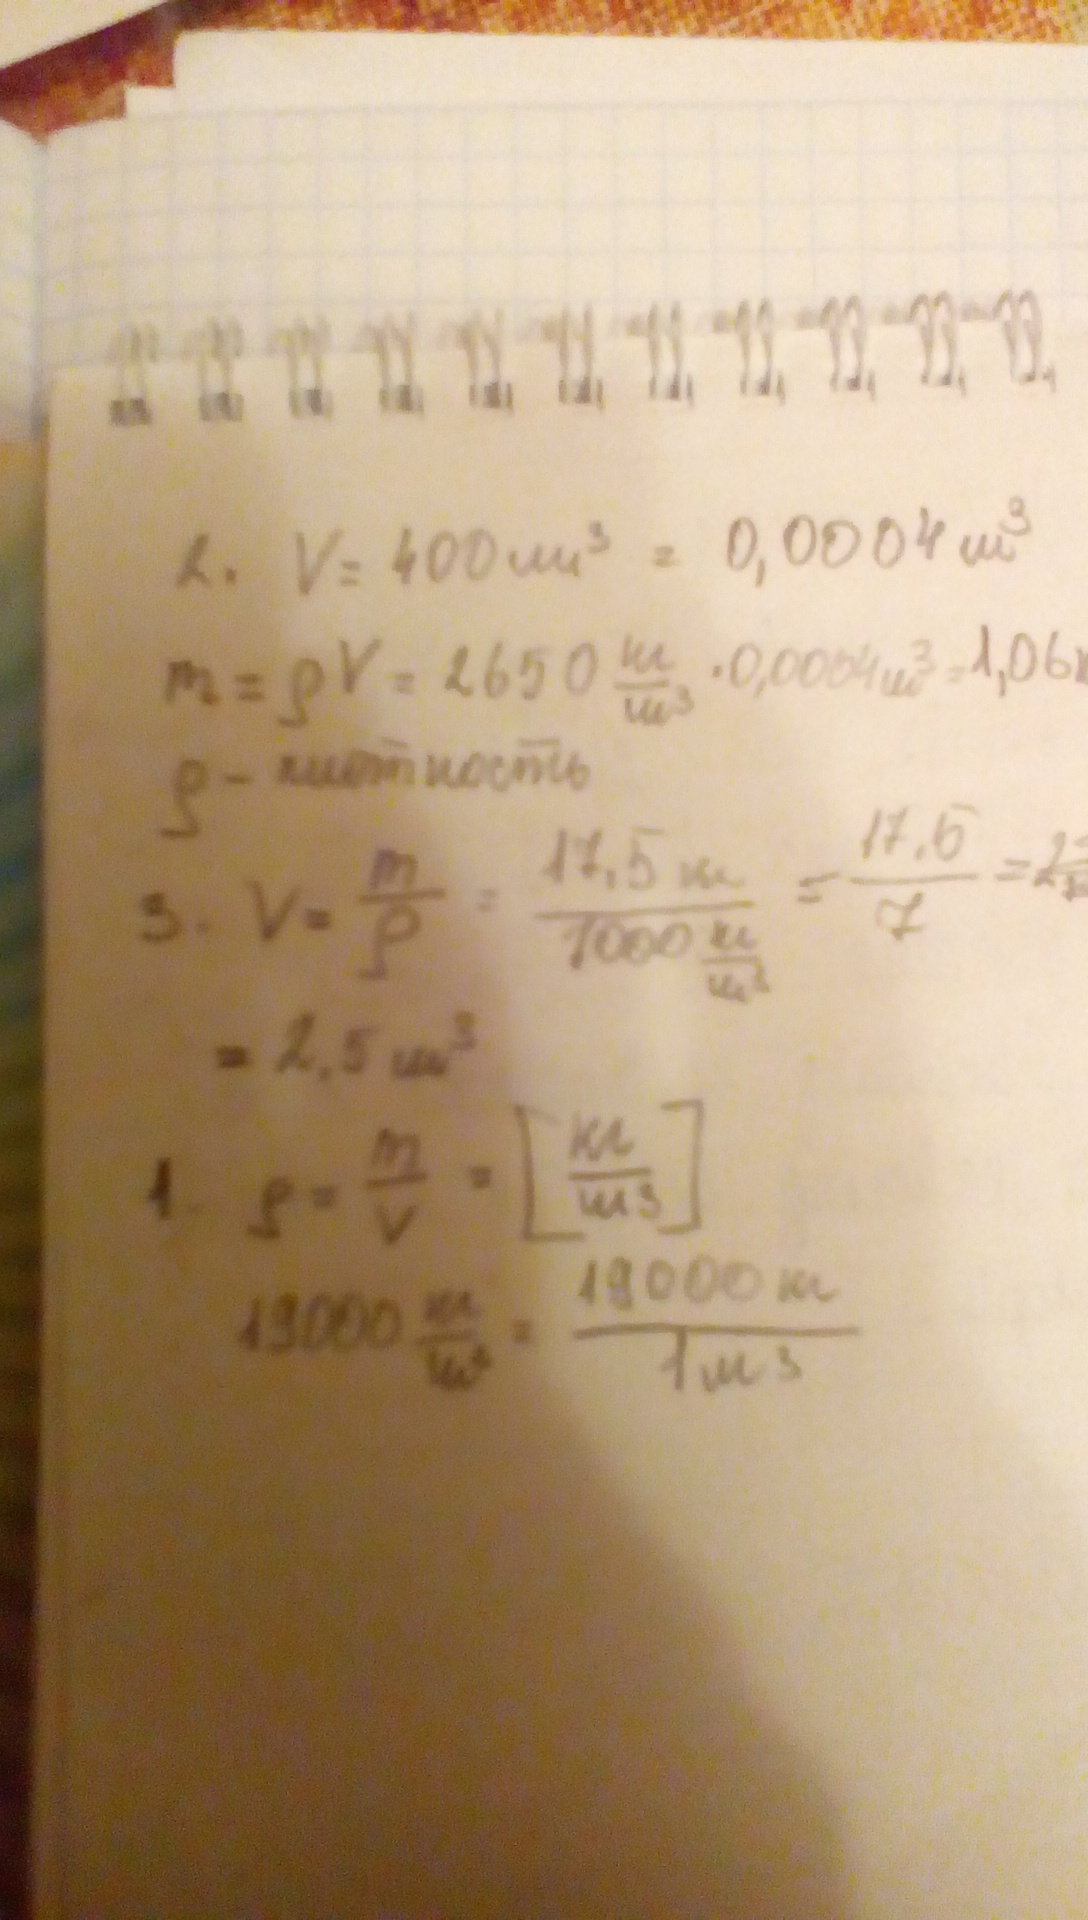 2. V = 400 см³ = 0,0004 м³
m = ρV = 2650 кг/м³ · 0,0004 м³ = 1,06
ρ - плотность
3. V = m/ρ = 17,5 кг / 7000 кг/м³ = 17,5 / 7 =
= 2,5 м³
1. ρ = m/V = [кг/м³]
19000 кг/м³ = 19000 кг / 1 м³